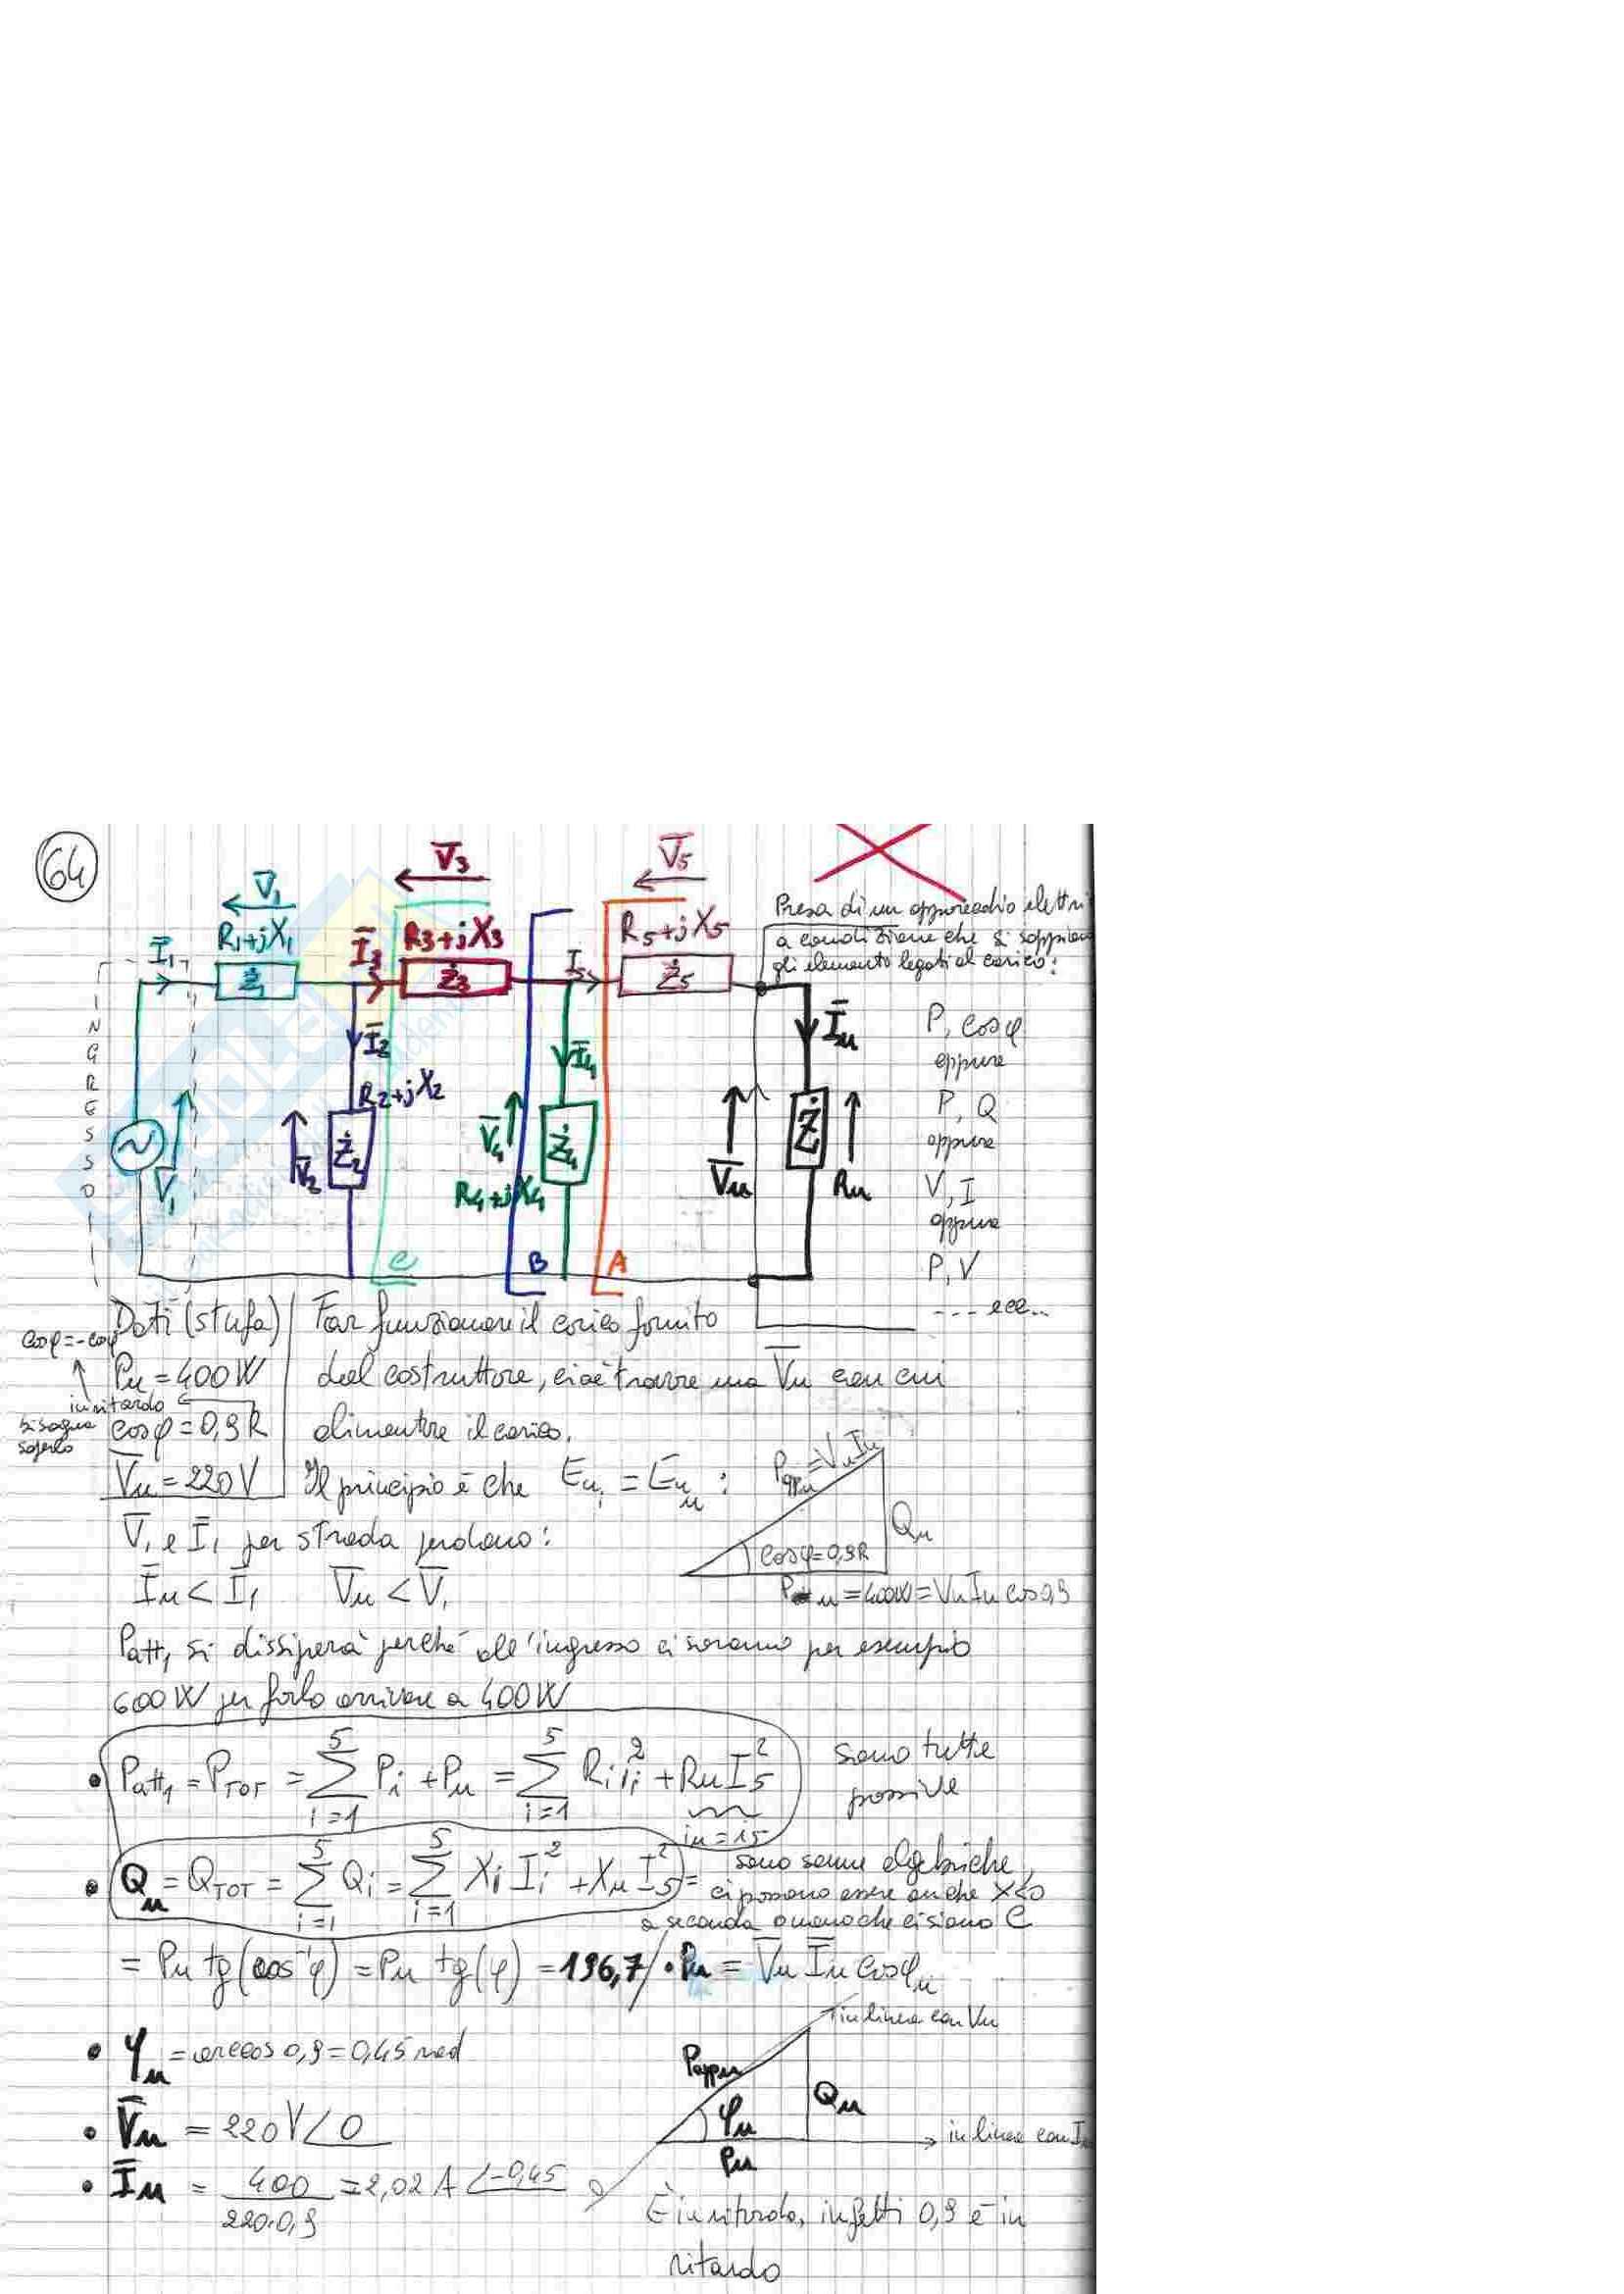 64
V̅1
V̅3
V̅5
R1+jX1
R3+jX3
R5+jX5
Presa di un apparecchio elettri
a condizione che si sappiano
gli elemento legati al carico:
I̅1
Ż1
I̅3
Ż3
I5
Ż5
INGRESSO
I̅2
I̅4
I̅u
P, cosφ
oppure
R2+jX2
P, Q
oppure
V̅1
V̅2
Ż2
V̅4
Ż4
R4+jX4
V̅u
Ż
Ru
V, I
oppure
P, V
C
B
A
---ecc..
Dati (stufa)
cosφ=-cosφ
Pu = 400W
in ritardo
bisogna
saperlo
cosφ = 0,9R
V̅u = 220V
Far funzionare il carico fornito
dal costruttore, cioè trovare una V̅u con cui
alimentare il carico.
Il principio è che Eu1 = Euu :
Pappu=VuIu
Qu
cosφ=0,9R
Pu = 400W = VuIu cos0,9
V̅1 e I̅1 per strada perdono:
I̅u < I̅1 V̅u < V̅1
Patt1 si dissiperà perché all'ingresso ci saranno per esempio
600W per farlo arrivare a 400W
• Patt1 = PTOT = 5∑i=1 Pi + Pu = 5∑i=1 Ri ii² + Ru I5²
iu = i5
sono tutte
passive
• Qu = QTOT = 5∑i=1 Qi = 5∑i=1 Xi Ii² + Xu I5² =
sono somme algebriche,
ci possono essere anche X<0
a seconda o meno che ci siano C
= Pu tg(cos⁻¹φ) = Pu tg(φ) = 196,7 / • Pu = V̅u I̅u cosφu
• φu = arccos 0,9 = 0,45 rad
• V̅u = 220V∠0
• I̅u = 400/220·0,9 = 2,02 A ∠-0,45
in linea con Vu
Pappu
Qu
φu
Pu
in linea con I
È in ritardo, infatti 0,9 è in
ritardo